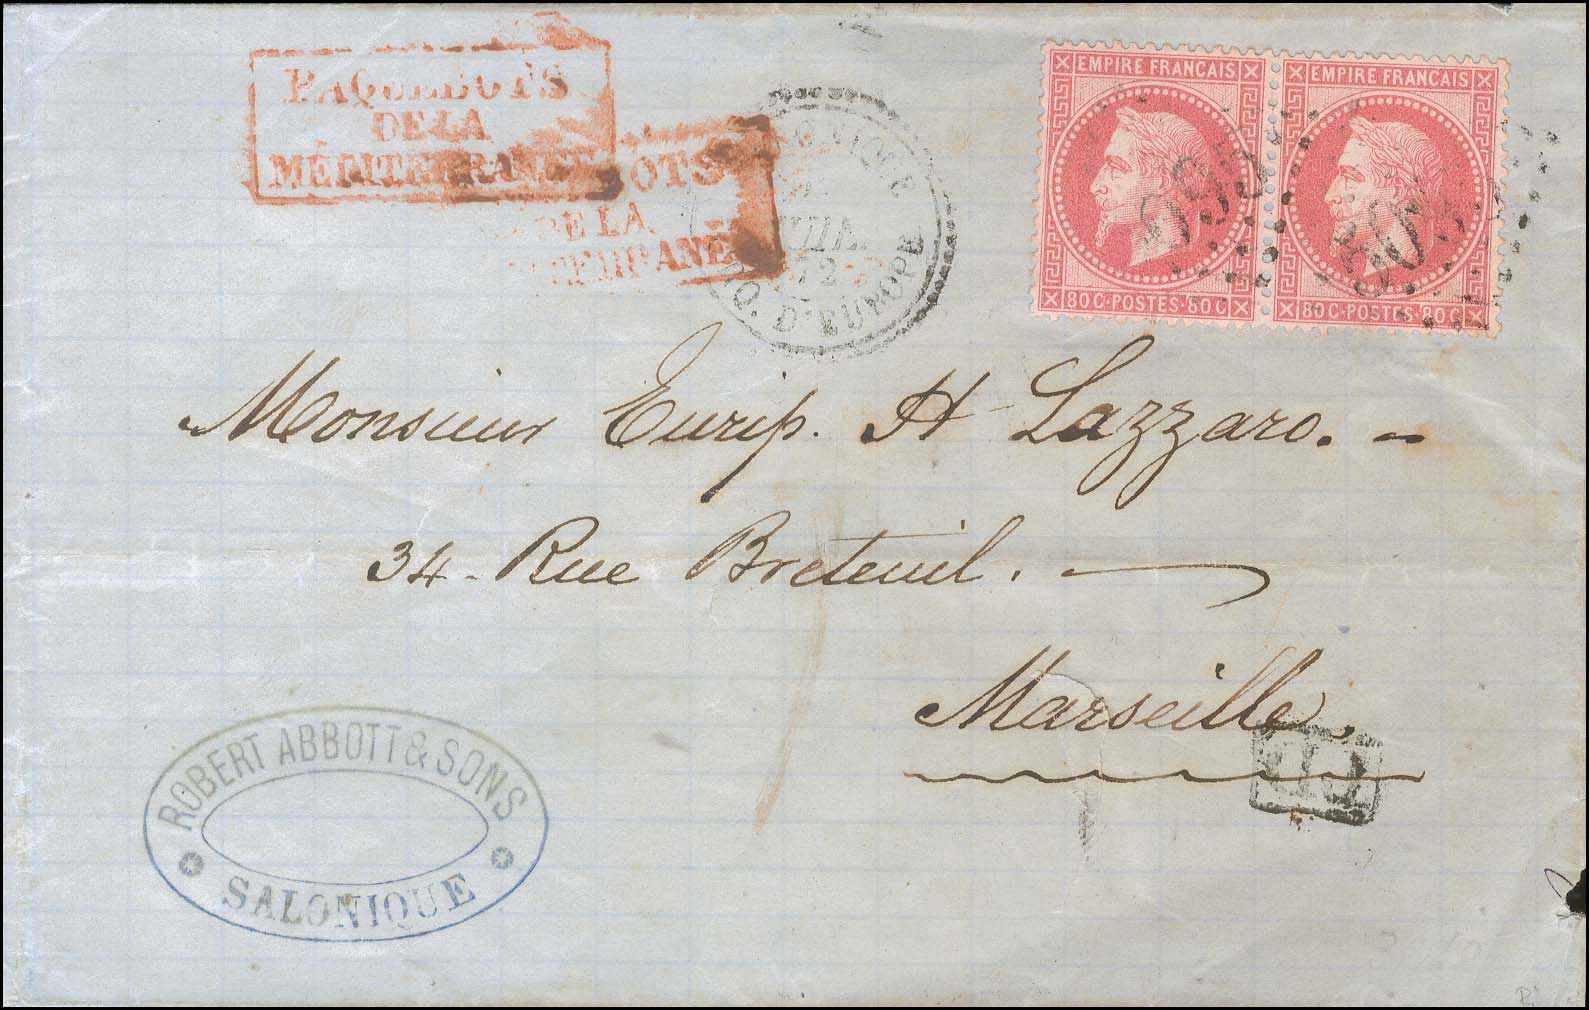 PAQUEBOTS
DE LA
MÉDITERRANÉE
OTS
DE LA
TERRANÉ
ONIQUE
72
O. D'EUROPE
EMPIRE FRANCAIS
80 C·POSTES·80 C
EMPIRE FRANCAIS
80 C·POSTES·80 C
Monsieur Eurip. H Lazzaro. -
34 - Rue Breteuil.
Marseille.
P.D.
ROBERT ABBOTT & SONS
SALONIQUE